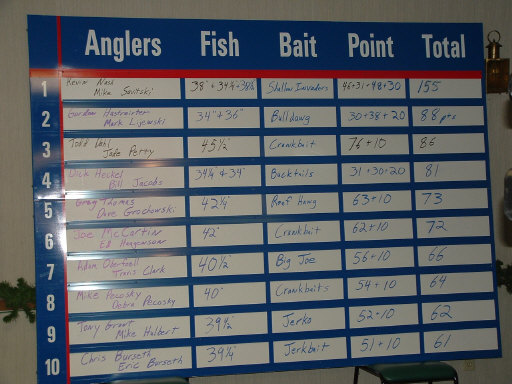 Anglers Fish Bait Point Total
1 Kevin Nash 38" + 34¼ + 38½ Shallow Invaders 46+31+48+30 155
Mike Savitski
2 Gordon Hastreiter 34" + 36" Bulldawg 30+38+20 88 pts
Mark Lijewski
3 Todd Dahl 45½" Crankbait 76+10 86
Jade Perry
4 Dick Heckel 34¼ + 34" Bucktails 31+30+20 81
Bill Jacobs
5 Greg Thomas 42¼" Reef Hawg 63+10 73
Dave Grochowski
6 Joe McCartin 42" Crankbait 62+10 72
Ed Haggensen
7 Adam Oberthell 40½" Big Joe 56+10 66
Travis Clark
8 Mike Pecosky 40" Crankbaits 54+10 64
Debra Pecosky
9 Tony Grant 39½ Jerko 52+10 62
Mike Halbert
10 Chris Burseth 39¼" Jerkbait 51+10 61
Eric Burseth